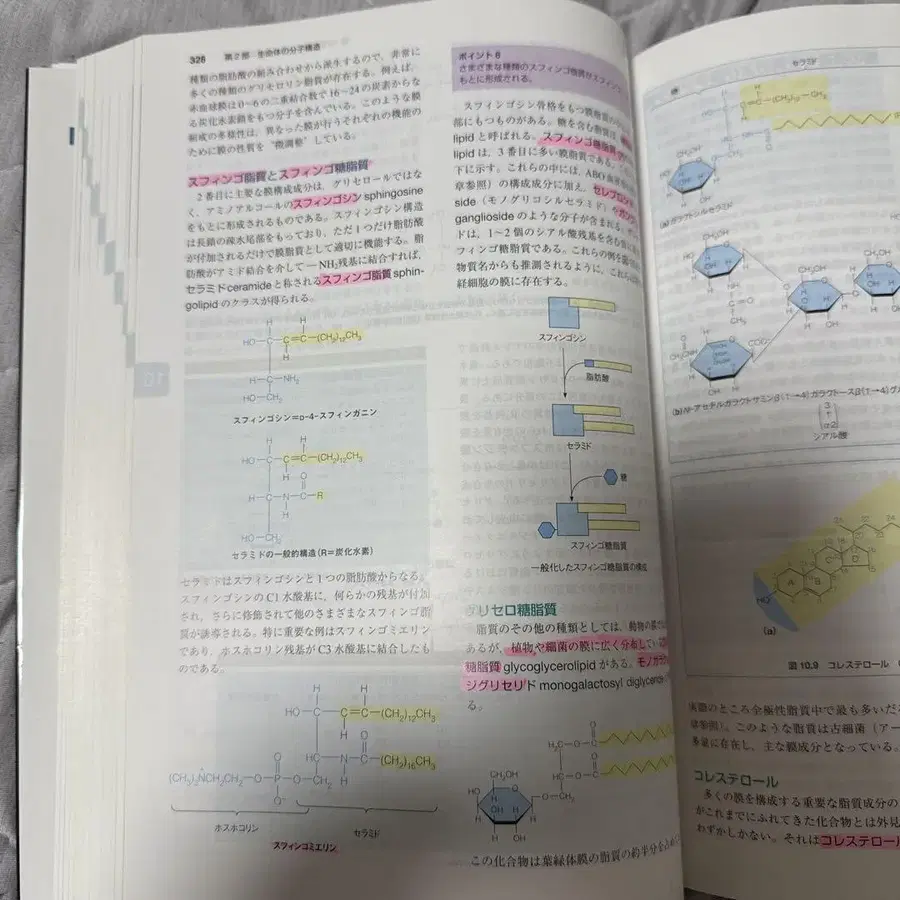 328 第2部 生命体の分子構造
種類の脂肪酸の組み合わせから派生するので，非常に
多くの種類のグリセロリン脂質が存在する．例えば，
赤血球膜は0〜6の二重結合数で16〜24の炭素からな
る炭化水素鎖をもつ分子を含んでいる．このような膜
組成の多様性は，異なった膜が行うそれぞれの機能の
ために膜の性質を“微調整”している．
スフィンゴ脂質とスフィンゴ糖脂質
2番目に主要な膜構成成分は，グリセロールではな
く，アミノアルコールのスフィンゴシン sphingosine
をもとに形成されるものである．スフィンゴシン構造
は長鎖の疎水尾部をもっており，ただ1つだけ脂肪酸
が付加されるだけで膜脂質として適切に機能する．脂
肪酸がアミド結合を介して―NH₂残基に結合すれば，
セラミド ceramide と称されるスフィンゴ脂質 sphin-
golipid のクラスが得られる．
H H
HO—C—C=C—(CH₂)₁₂CH₃
H
H—C—NH₂
HO—CH₂
スフィンゴシン=D-4-スフィンガニン
H H
HO—C—C=C—(CH₂)₁₂CH₃
H O
H—C—N—C—R
H
HO—CH₂
セラミドの一般的構造(R=炭化水素)
セラミドはスフィンゴシンと1つの脂肪酸からなる．
スフィンゴシンのC1水酸基に，何らかの残基が付加
され，さらに修飾されて他のさまざまなスフィンゴ脂
質が誘導される．特に重要な例はスフィンゴミエリン
であり，ホスホコリン残基がC3水酸基に結合したも
のである．
H H
HO—C—C=C—(CH₂)₁₂CH₃
H O
H—C—N—C—(CH₂)₁₆CH₃
(CH₃)₃NCH₂CH₂—O—P—O—CH₂ H
O⁻
ホスホコリン セラミド
スフィンゴミエリン
ポイント8
さまざまな種類のスフィンゴ糖質がスフィンゴ
もとに形成される．
スフィンゴシン骨格をもつ膜脂質の
部にもつものがある．糖を含む脂質は，
lipid と呼ばれる．スフィンゴ糖脂質
lipid は，3番目に多い膜脂質である．
下に示す．これらの中には，ABO
章参照）の構成成分に加え，セレブロシド
side（モノグリコシルセラミド）や
ganglioside のような分子が含まれる．
ドは，1〜2個のシアル酸残基を含む
フィンゴ糖脂質である．これらの例を
物質名からも推測されるように，これら
経細胞の膜に存在する．
スフィンゴシン
脂肪酸
セラミド
糖
スフィンゴ糖脂質
一般化したスフィンゴ糖脂質の構成
リセロ糖脂質
脂質のその他の種類としては，動物の膜で
あるが，植物や細菌の膜に広く分布してい
糖脂質 glycoglycerolipid がある．モノガラ
ジグリセリド monogalactosyl diglyceride
る．
H₂C—O—C
O
CH₂OH
HC—O—C
HO O
O—CH₂
OH H
H OH
この化合物は葉緑体膜の脂質の約半分を
セラミド
CH₂OH
(a) ガラクトシルセラミド
CH₂OH
C=O
CH₃
COO⁻
(b) N-アセチルガラクトサミンβ(1→4)ガラクトースβ(1→4)グル
3
↑
α2
シアル酸
A B C
HO
(a)
図10.9 コレステロール
実際のところ全極性脂質中で最も多いだ
章参照）．このような脂質は古細菌（アー
多量に存在し，主な膜成分となっている．
コレステロール
多くの膜を構成する重要な脂質成分の
がこれまでにふれてきた化合物とは外見
わずかしかない．それはコレステロール